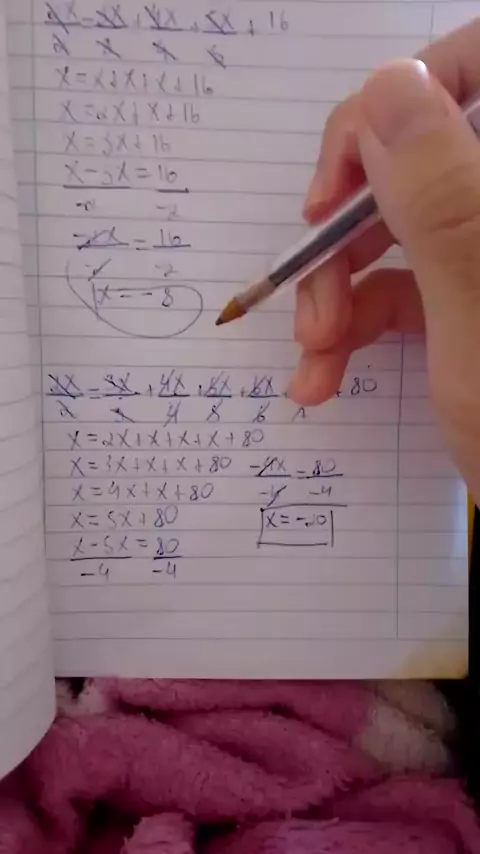 2X/2 = 3X/3 + 4X/4 + 5X/5 + 16
X = X+X+X+16
X = 2X+X+16
X = 3X+16
X-3X = 16
-2 -2
-2X = 16
-2 -2
X = -8
2X/2 = 3X/3 + 4X/4 + 5X/5 + 6X/6 + 80
X = 2X+X+X+X+80
X = 3X+X+X+80
X = 4X+X+80
X = 5X+80
X-5X = 80
-4 -4
-4X = 80
-4 -4
X = -20